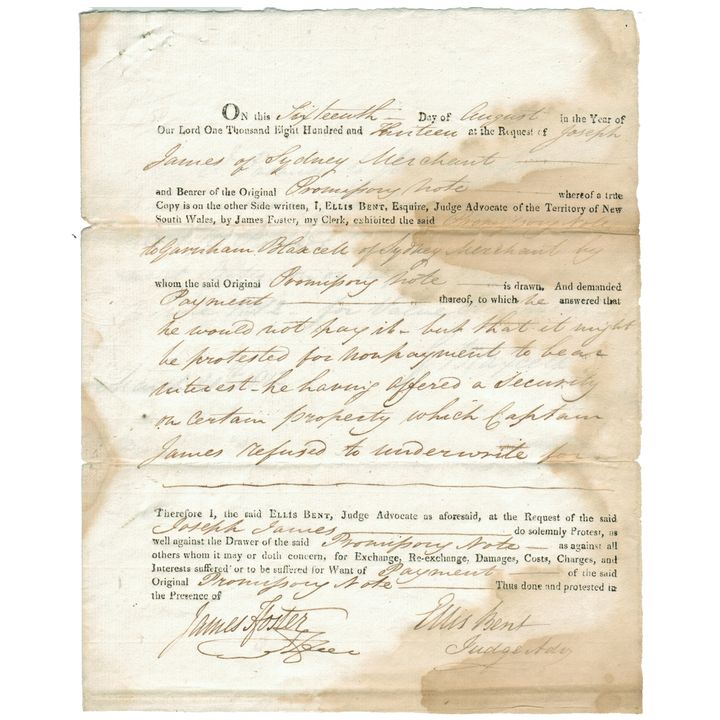 ON this Sixteenth Day of August in the Year of
Our Lord One Thousand Eight Hundred and thirteen at the Request of Joseph
James of Sydney Merchant
and Bearer of the Original Promissory Note whereof a true
Copy is on the other Side written, I, ELLIS BENT, Esquire, Judge Advocate of the Territory of New
South Wales, by James Foster, my Clerk, exhibited the said Promissory Note
to Garnham Blaxcell of Sydney Merchant by
whom the said Original Promissory Note is drawn. And demanded
Payment thereof, to which he answered that
he would not pay it - but that it might
be protested for nonpayment to bear
interest - he having offered a Security
on certain property which Captain
James refused to underwrite for
Therefore I, the said ELLIS BENT, Judge Advocate as aforesaid, at the Request of the said
Joseph James do solemnly Protest, as
well against the Drawer of the said Promissory Note as against all
others whom it may or doth concern, for Exchange, Re-exchange, Damages, Costs, Charges, and
Interests suffered or to be suffered for Want of Payment of the said
Original Promissory Note Thus done and protested in
the Presence of
James Foster Ellis Bent
Judge Adv